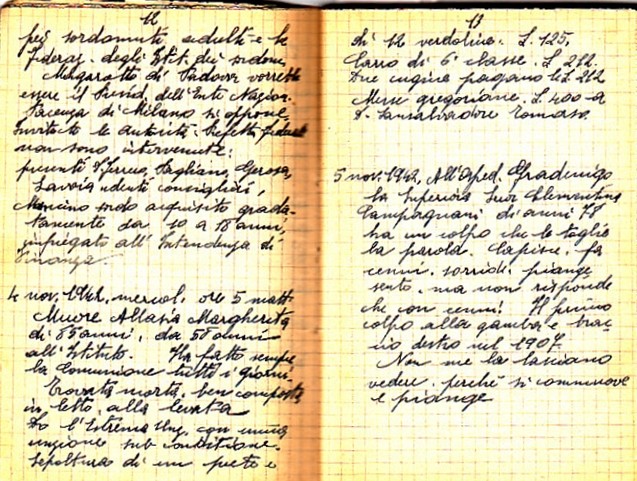 12
per sordomuti adulti e la
Federaz. degli Istit. dei sordom.
Mingarotto di Padova vorrebbe
essere il Presid. dell'Ente Nazion.
di Milano si oppone
Invitate le autorità: Prefetto, federale
non sono intervenute:
presenti Ferrero, Gagliano, Gerosa,
Savoia udenti consiglieri,
Mancino sordo acquisito grada-
tamente dai 10 a 18 anni,
impiegato all'Intendenza di
Finanza.
4 nov. 1942. mercol. ore 5 matt.
Muore Allasia Margherita
di 85 anni, da 58 anni
all'Istituto. Ha fatto sempre
la Comunione tutti i giorni.
Trovata morta, ben composta
in letto, alla levata
Do l'Estrema Unz. con unica
unzione sub conditione.
Sepoltura di un prete e
13
di 12 verdoline. L. 125.
Carro di 6ª classe. L. 212.
Due cugine pagano le L. 212
Messe gregoriane. L. 400 a
D. Sansalvadore Tomaso.
5 nov. 1942. All'Osped. Gradenigo
la Superiora Suor Clementina
Campagnani di anni 78
ha un colpo che le toglie
la parola. Capisce, fa
cenni, sorride, piange
sente, ma non risponde
che con cenni! Il primo
colpo alla gamba e brac
cio destro nel 1907.
Non me la lasciano
vedere, perché si commuove
e piange